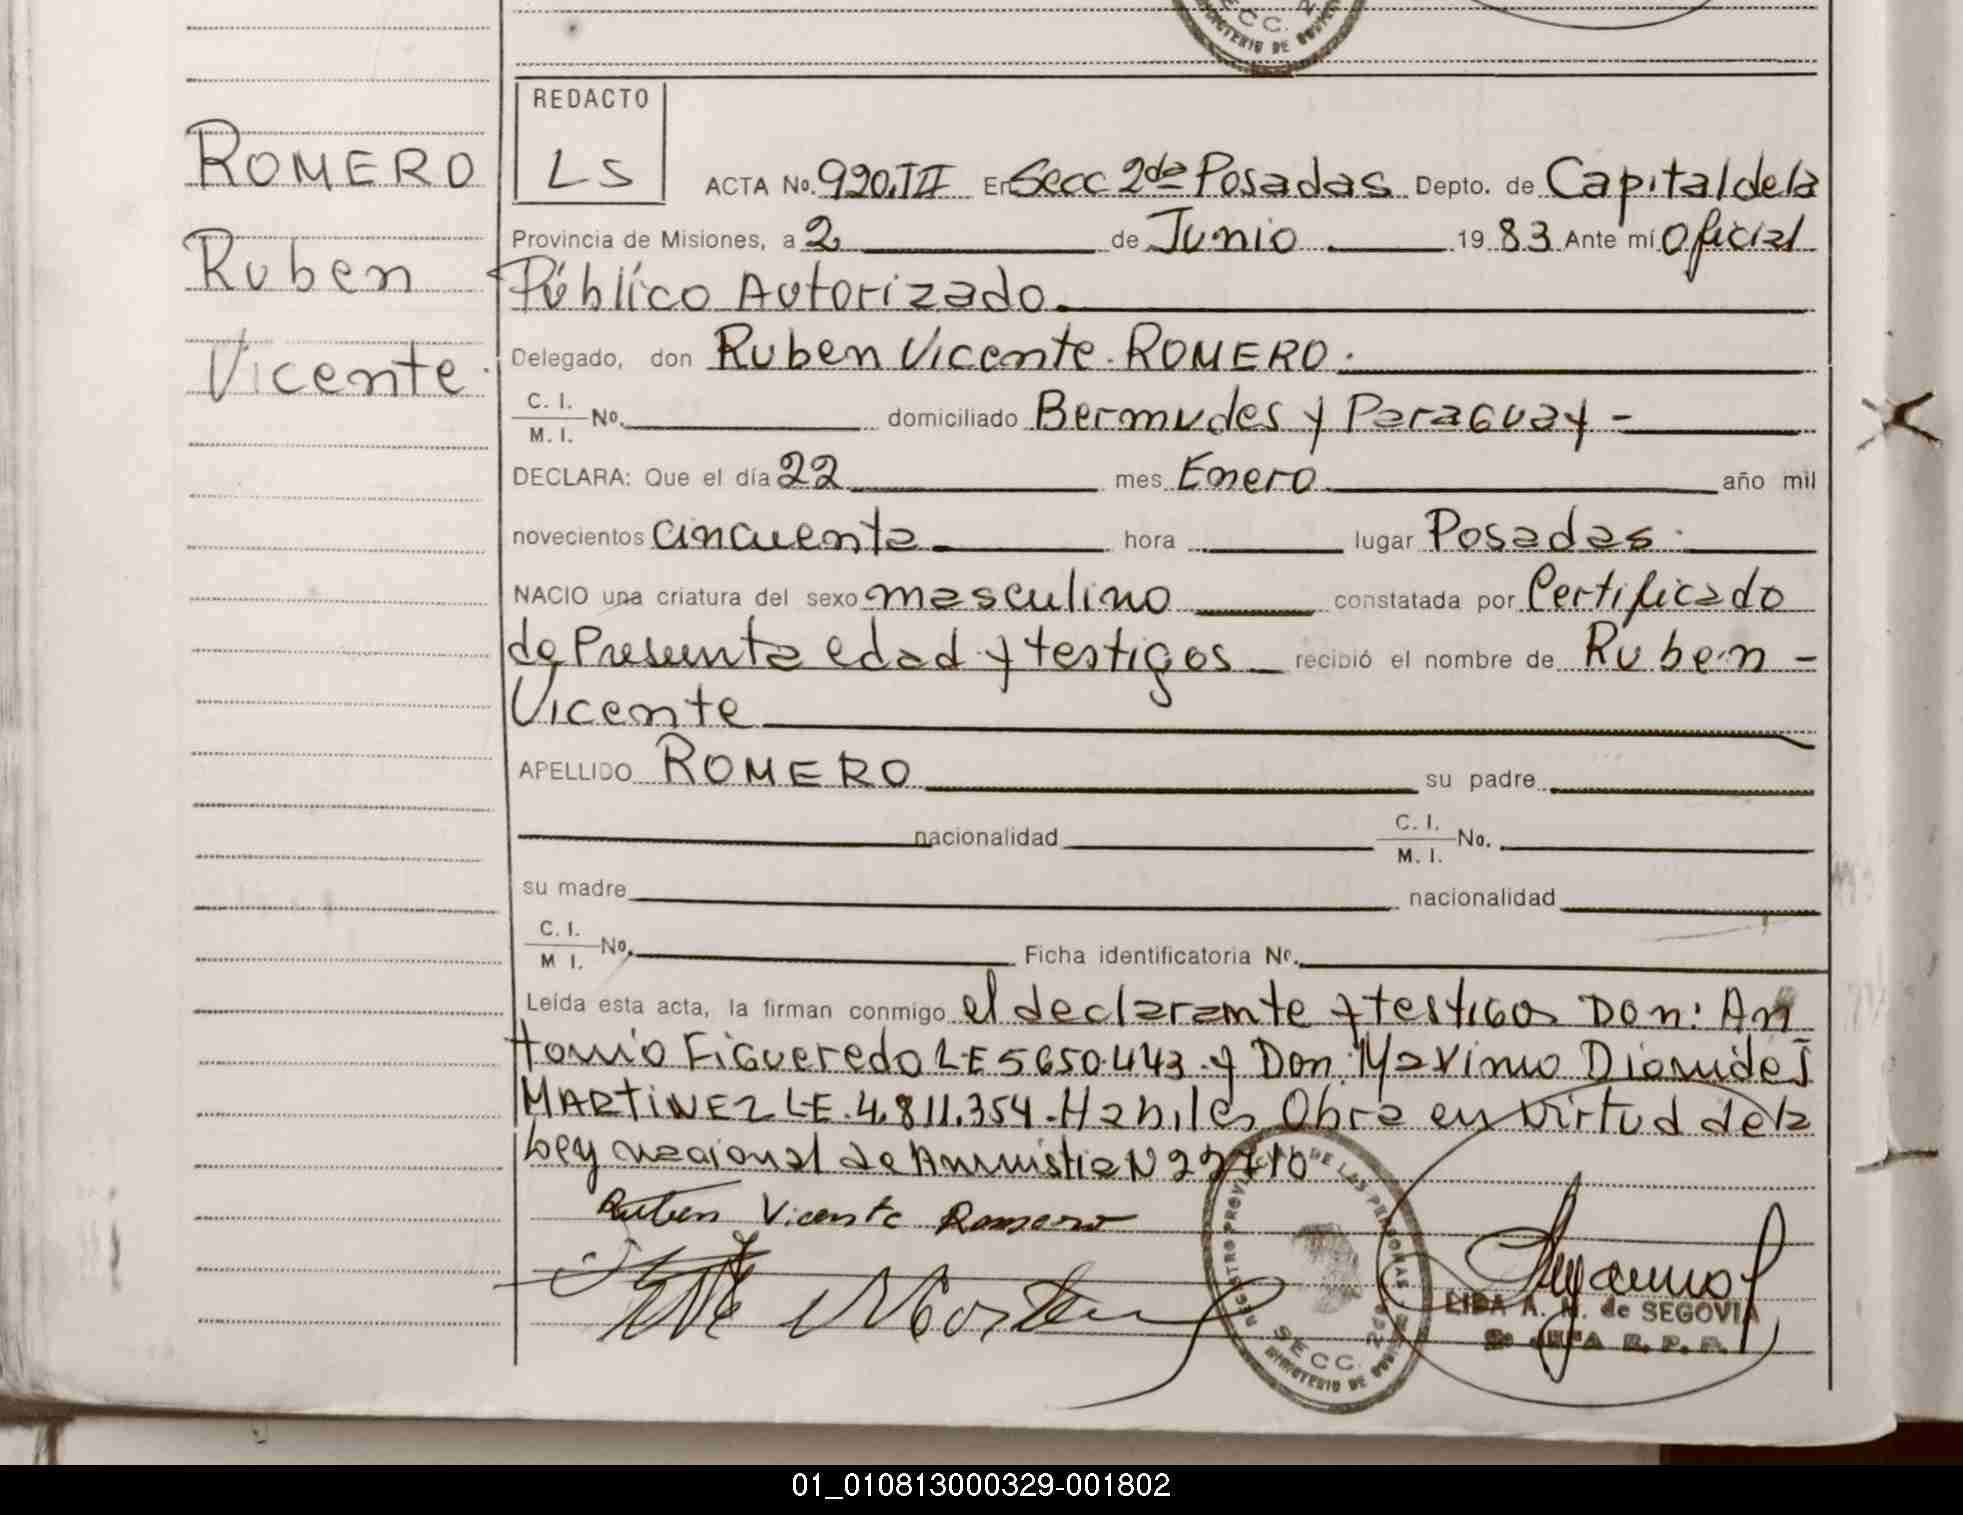 SECC. 2
MINISTERIO DE GOBIE
REDACTO
LS
ROMERO
Ruben
Vicente.
ACTA No. 990.TII En Secc 2da Posadas Depto. de Capital de la
Provincia de Misiones, a 2 de Junio 19 83 Ante mí Oficial
Público Autorizado.
Delegado, don Ruben Vicente ROMERO.
C. I.
M. I. No. domiciliado Bermudes y Paraguay -
DECLARA: Que el día 22 mes Enero año mil
novecientos cincuenta hora lugar Posadas.
NACIO una criatura del sexo masculino constatada por Certificado
de Presunta edad y testigos recibió el nombre de Ruben -
Vicente
APELLIDO ROMERO su padre
nacionalidad C. I.
M. I. No.
su madre nacionalidad
C. I.
M I. No. Ficha identificatoria No.
Leída esta acta, la firman conmigo el declarante y testigos Don: An
tonio Figueredo LE 5650.443 y Don: Maximo Diomides
MARTINEZ LE.4.811.354.Habiles Obra en virtud de la
Ley nacional de Amnistia N 22710
Ruben Vicente Romero
REGISTRO PROVINCIAL DE LAS PERSONAS
SECC. 2da
MINISTERIO DE GOBIE
LIDA A. N. de SEGOVIA
R. P. P.
01_010813000329-001802